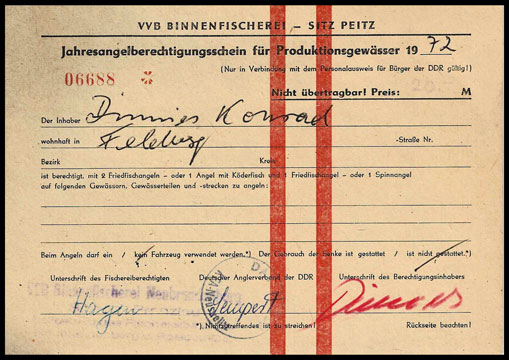 VVB BINNENFISCHEREI – SITZ PEITZ
Jahresangelberechtigungsschein für Produktionsgewässer 1972
(Nur in Verbindung mit dem Personalausweis für Bürger der DDR gültig!)
06688
Nicht übertragbar! Preis: M
Der Inhaber Dinnies Konrad
wohnhaft in Feldberg -Straße Nr.
Bezirk Kreis
ist berechtigt, mit 2 Friedfischangeln – oder 1 Angel mit Köderfisch und 1 Friedfischangel – oder 1 Spinnangel
auf folgenden Gewässern, Gewässerteilen und -strecken zu angeln:
Beim Angeln darf ein / kein Fahrzeug verwendet werden.*) Der Gebrauch der Senke ist gestattet / ist nicht gestattet.*)
Unterschrift des Fischereiberechtigten Deutscher Anglerverband der DDR Unterschrift des Berechtigungsinhabers
*) Nichtzutreffendes ist zu streichen! Rückseite beachten!